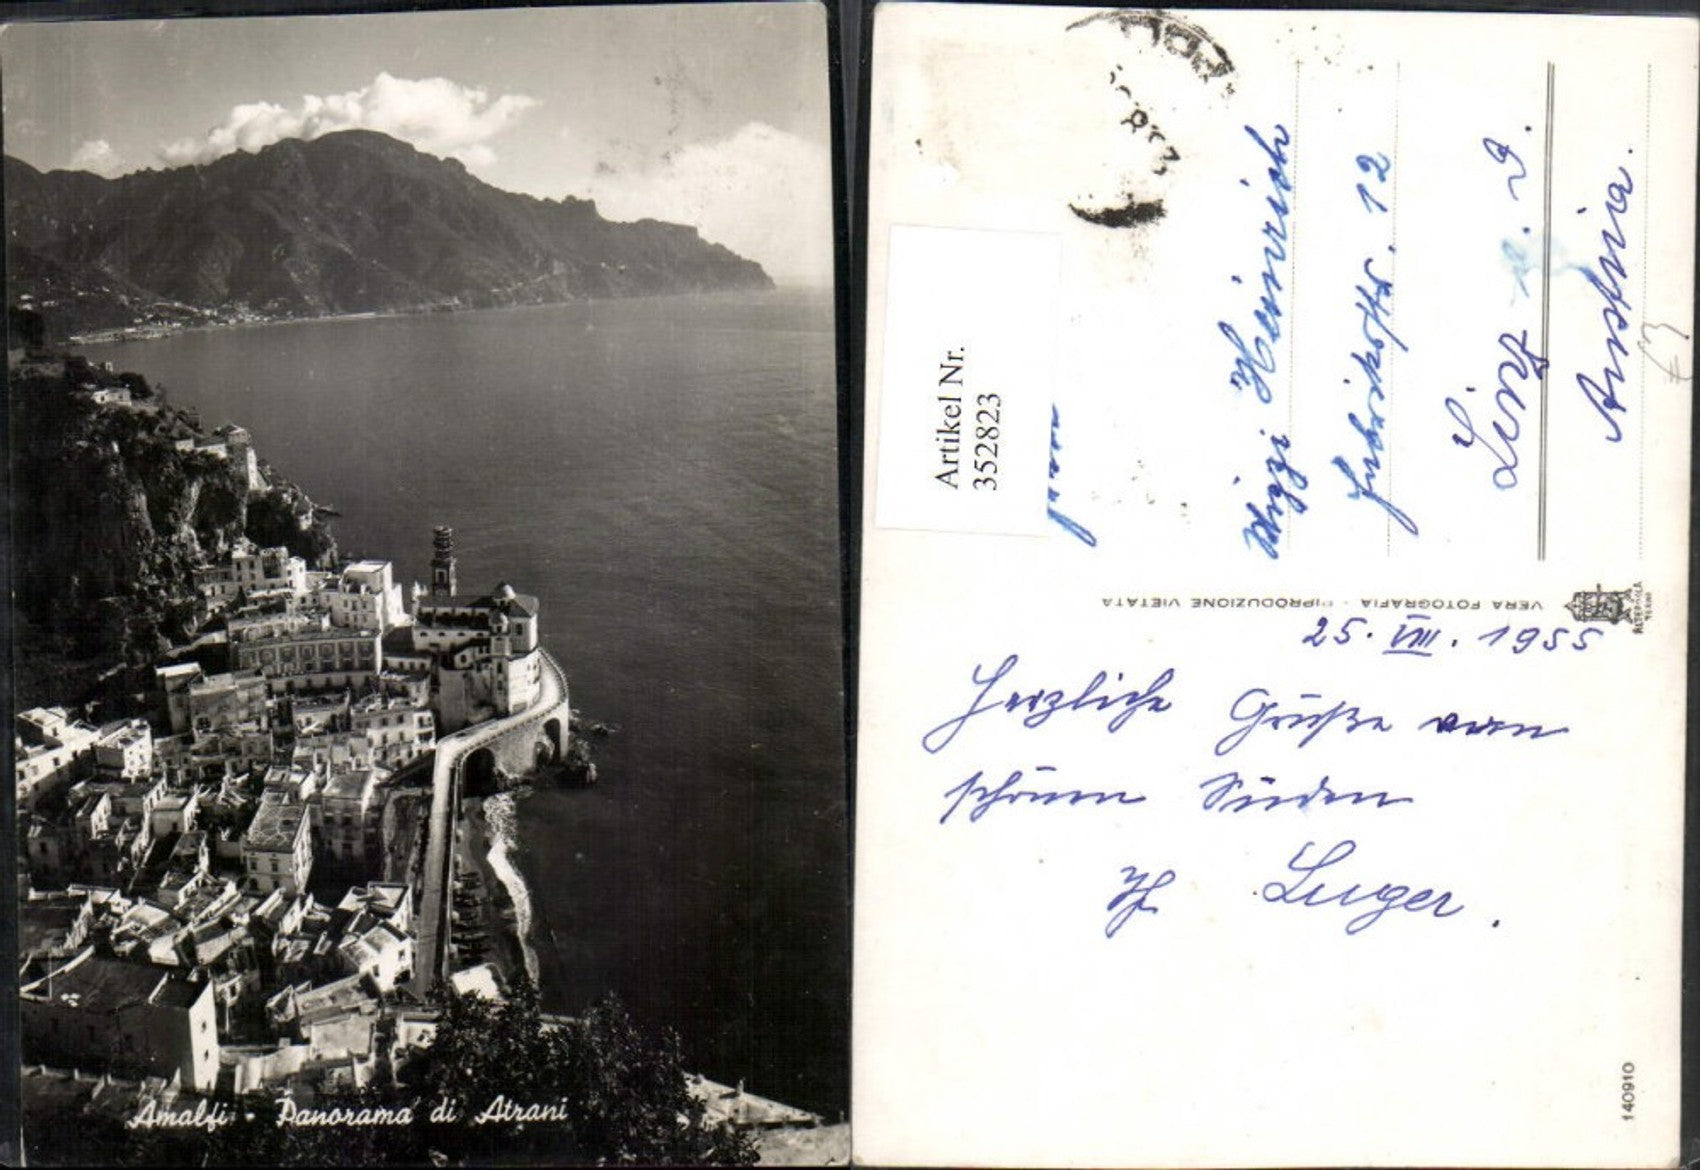 Amalfi - Panorama di Atrani
Artikel Nr.
352823
Heinrich
12
Linz a. D.
Austria.
VERA FOTOGRAFIA - RIPRODUZIONE VIETATA
25. VIII. 1955
Herzliche Grüße vom
schönen Süden
Luger.
140910